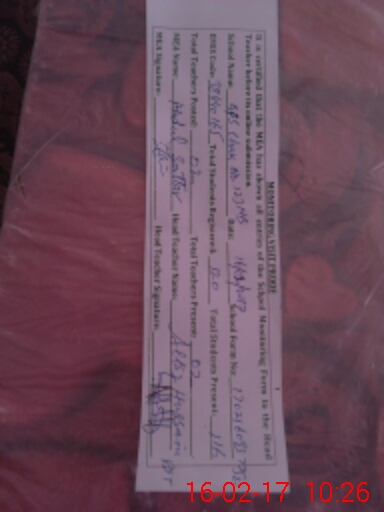 MONITORING VISIT PROOF
It is certified that the MEA has shown all entries of the School Monitoring Form to the Head
Teacher before its online submission.
School Name: GPS Chak No. 123 Date: 16/02/2017 School Form No:
EMIS Code: Total Students Registered: 120 Total Students Present: 116
Total Teachers Posted: 02 Total Teachers Present: 02
MEA Name: Abdul Sattar Head Teacher Name: Hussain
MEA Signature: Head Teacher Signature:
16-02-17 10:26